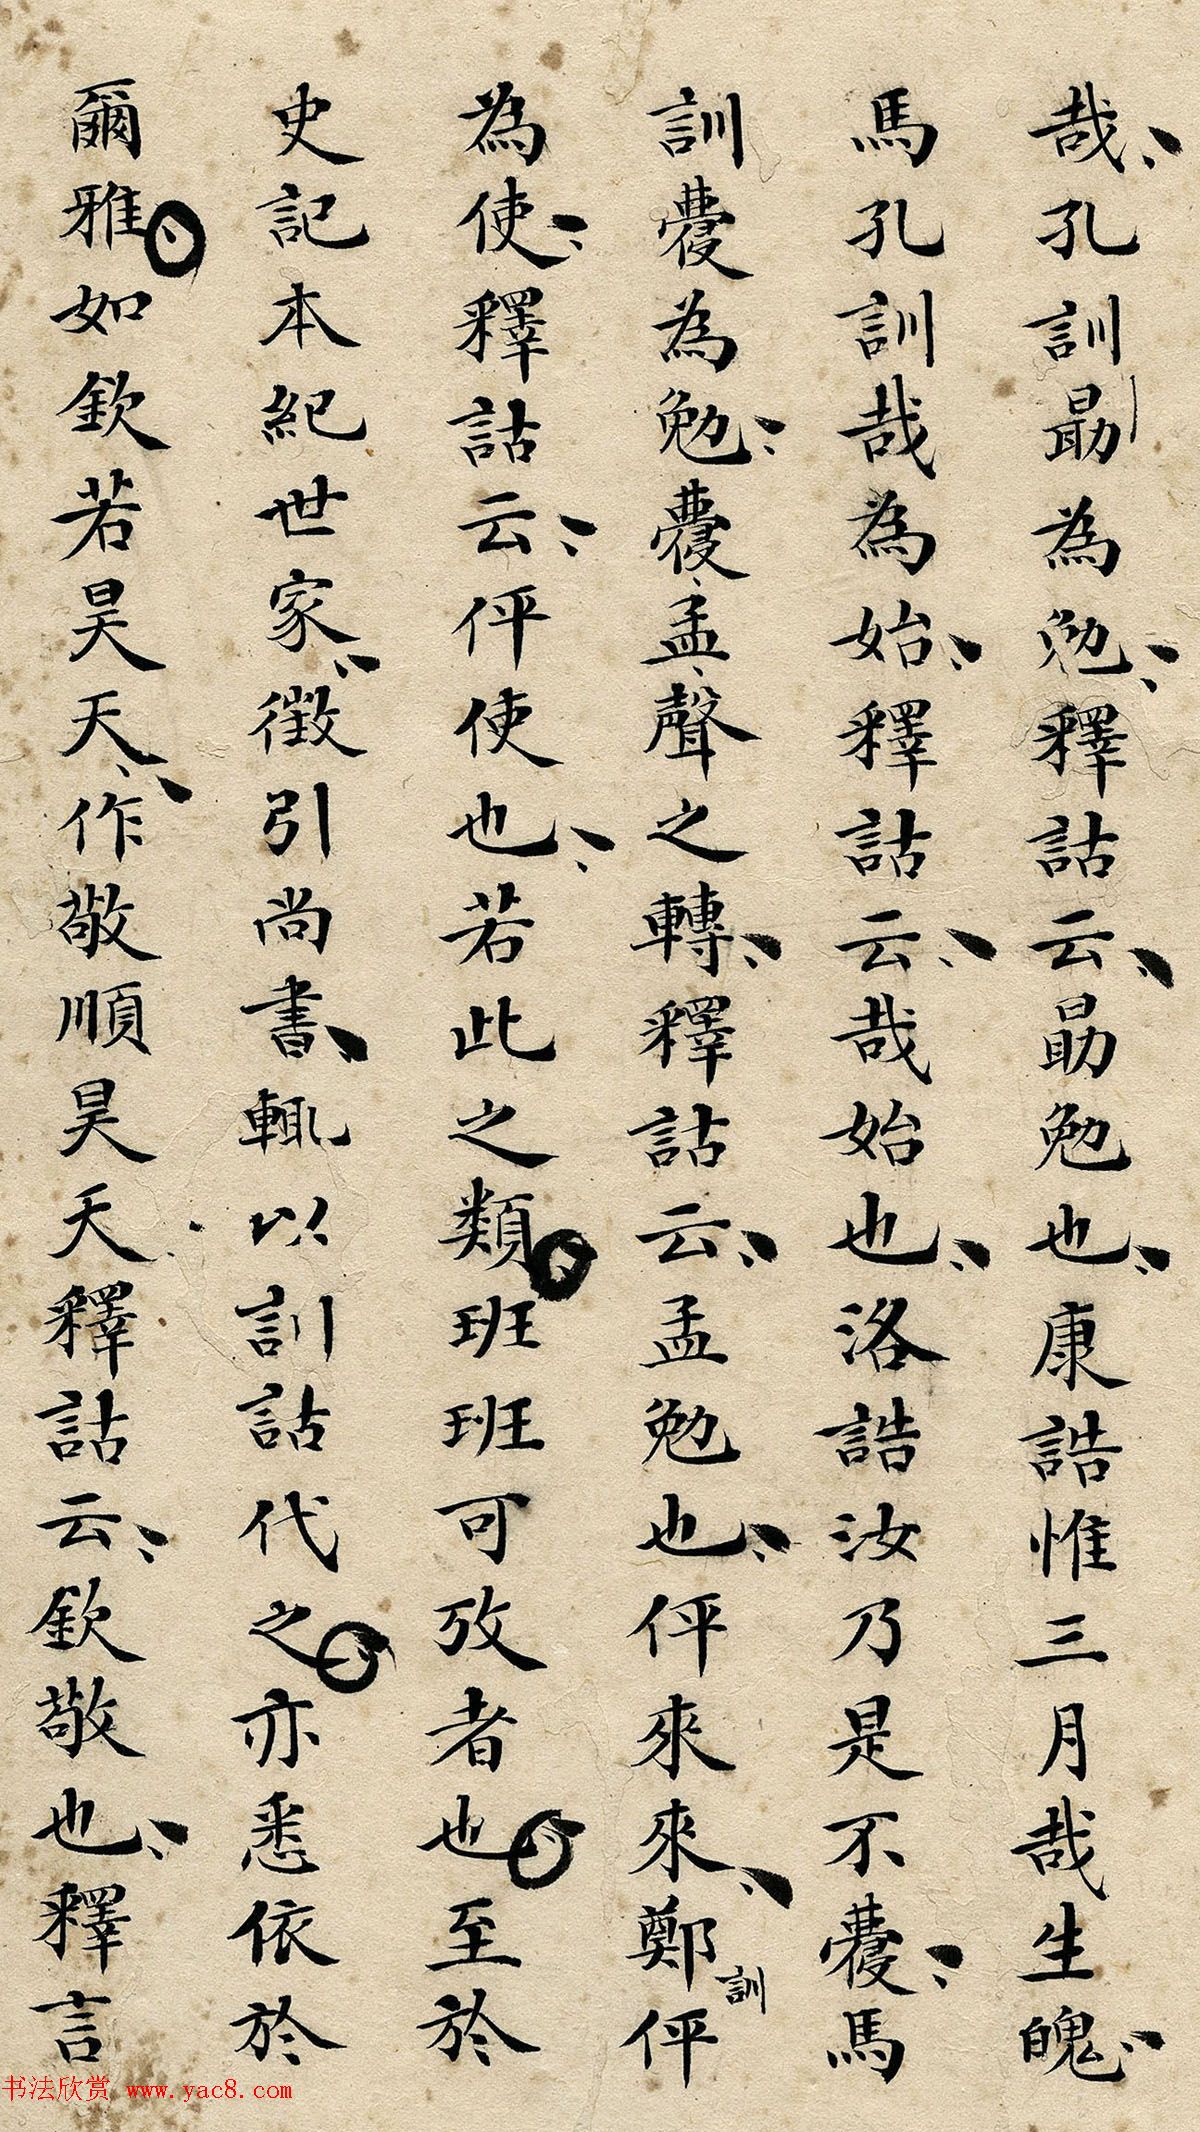 哉孔訓勗為勉釋詁云勗勉也康誥惟三月哉生魄
馬孔訓哉為始釋詁云哉始也洛誥汝乃是不蘉馬
訓蘉為勉蘉孟聲之轉釋詁云孟勉也伻來來鄭訓伻
為使釋詁云伻使也若此之類班班可攷者也至於
史記本紀世家徵引尚書輒以訓詁代之亦悉依於
爾雅如欽若昊天作敬順昊天釋詁云欽敬也釋言
书法欣赏 www.yac8.com